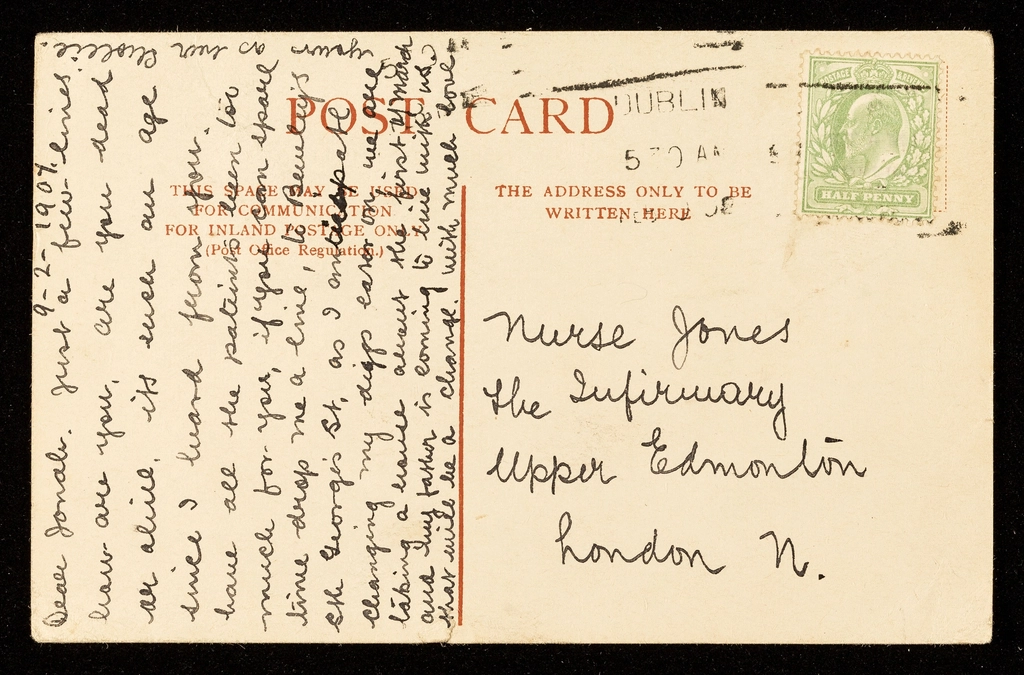 POST CARD
THIS SPACE MAY BE USED
FOR COMMUNICATION
FOR INLAND POSTAGE ONLY
(Post Office Regulation.)
THE ADDRESS ONLY TO BE
WRITTEN HERE
DUBLIN
5 30 AM
POSTAGE
HALF PENNY
Nurse Jones
The Infirmary
Upper Edmonton
London N.
9-2-1907.
Dear Jonah. Just a few lines
how are you, are you dead
or alive. its such an age
since I heard from you.
have all the patients been too
much for you, if you can spare
time drop me a line, to
Sth Georges St, as I
changing my digs later on, we are
taking a house about the first of March
and my father is coming to live with us
that will be a change. with much love
yours as ever